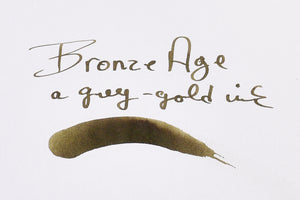 Bronze Age
a grey-gold ink